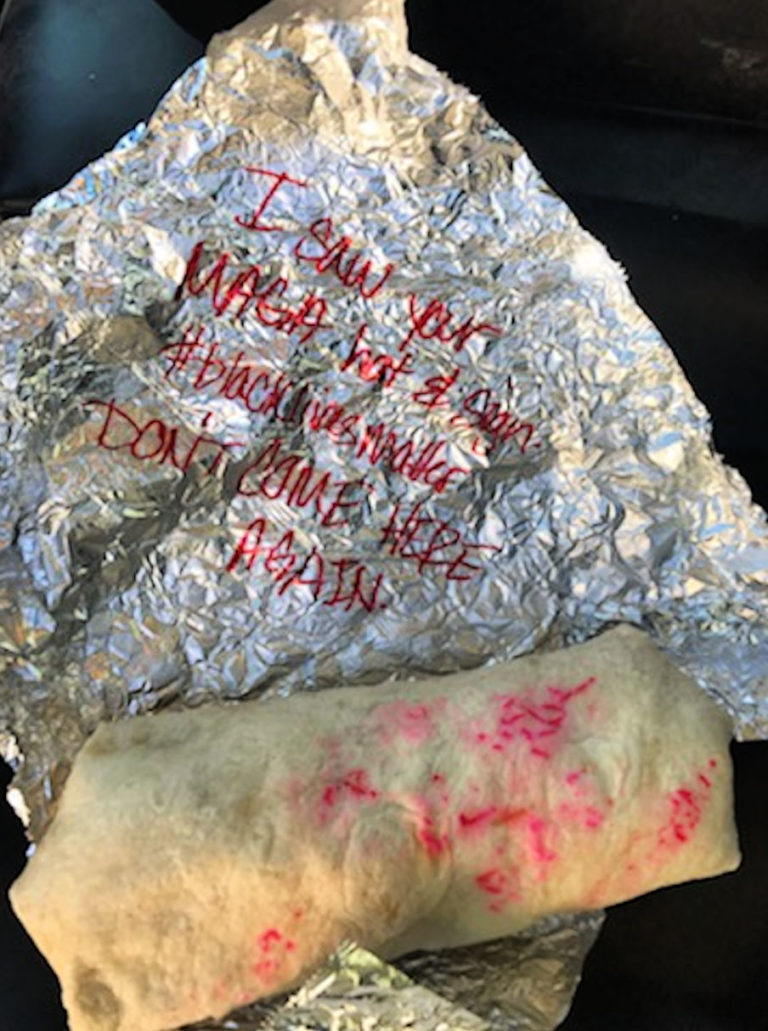 I saw your
MAGA hat & sign.
#blacklivesmatter
DON'T COME HERE
AGAIN.